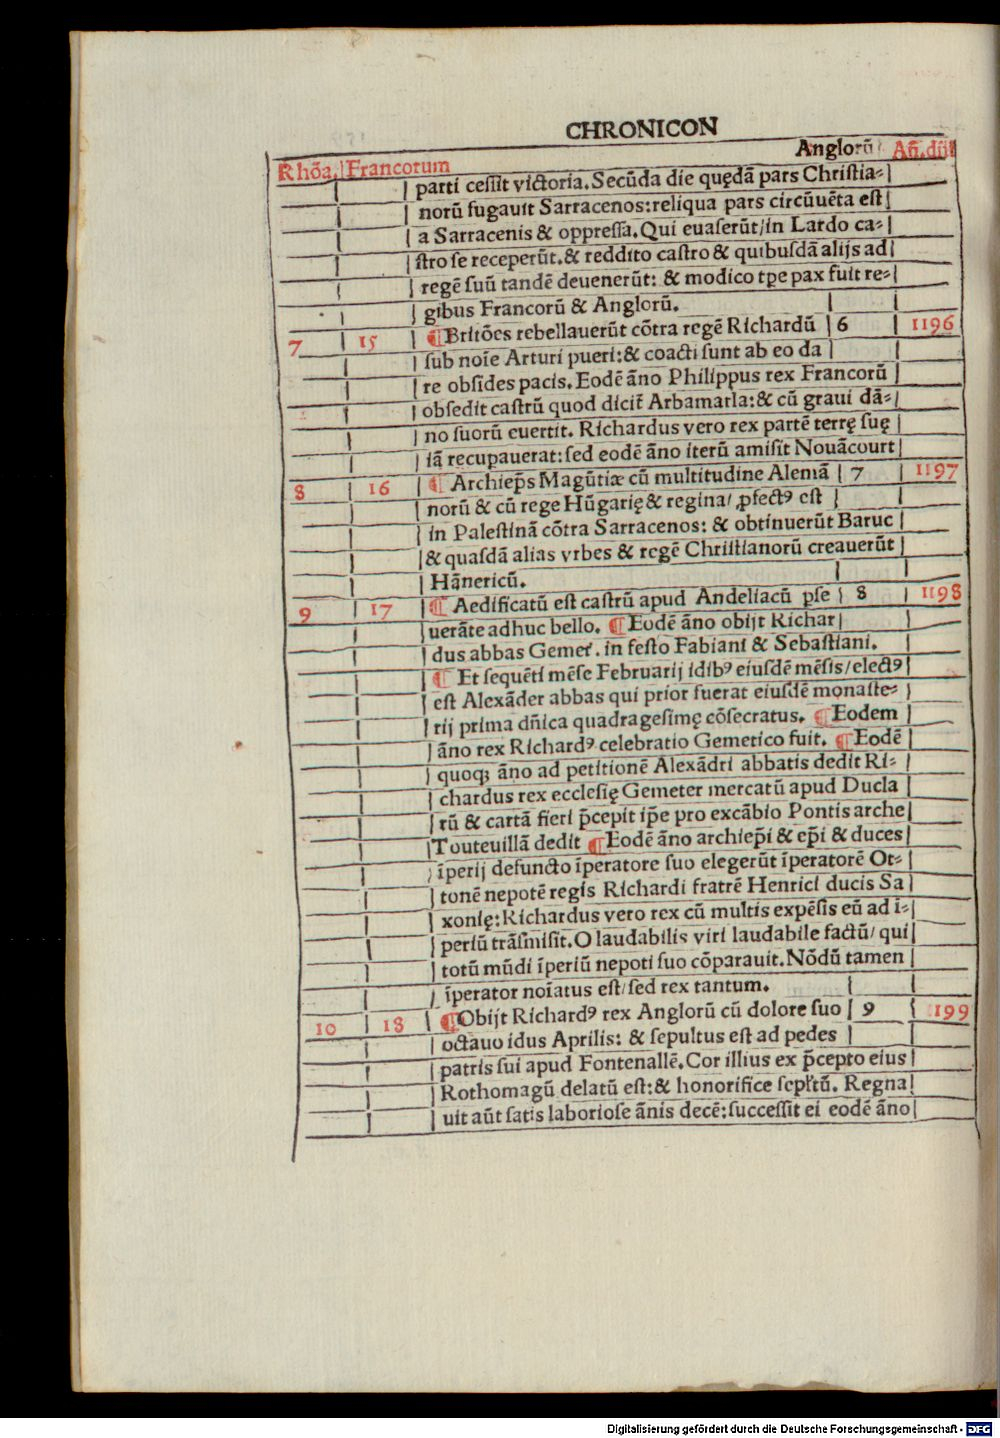 CHRONICON
Rhõa. Francorum Anglorũ Añ.dñi
parti cessit victoria. Secũda die quędã pars Christia-
norũ fugauit Sarracenos: reliqua pars circũuẽta est
a Sarracenis & oppressa. Qui euaserũt/in Lardo ca-
stro se receperũt. & reddito castro & quibusdã alijs ad
regẽ suũ tandẽ deuenerũt: & modico tpe pax fuit re-
gibus Francorũ & Anglorũ.
7 15 ¶Britões rebellauerũt cõtra regẽ Richardũ 6 1196
sub noĩe Arturi pueri: & coacti sunt ab eo da
re obsides pacis. Eodẽ ãno Philippus rex Francorũ
obsedit castrũ quod dicit̃ Arbamarla: & cũ graui dã-
no suorũ euertit. Richardus vero rex partẽ terrę suę
iã recupauerat: sed eodẽ ãno iterũ amisit Nouãcourt
8 16 ¶ Archiep̃s Magũtiæ cũ multitudine Alemã 7 1197
norũ & cũ rege Hũgarię & regina/ ꝓfectꝰ est
in Palestinã cõtra Sarracenos: & obtinuerũt Baruc
& quasdã alias vrbes & regẽ Christianorũ creauerũt
Hãnericũ.
9 17 ¶ Aedificatũ est castrũ apud Andeliacũ pse 8 1198
uerãte adhuc bello. ¶ Eodẽ ãno obijt Richar
dus abbas Gemet̃. in festo Fabiani & Sebastiani.
¶ Et sequẽti mẽse Februarij idibꝰ eiusdẽ mẽsis/electꝰ
est Alexãder abbas qui prior fuerat eiusdẽ monaste-
rij prima dñica quadragesimę cõsecratus. ¶Eodem
ãno rex Richardꝰ celebratio Gemetico fuit. ¶Eodẽ
quoqꝫ ãno ad petitionẽ Alexãdri abbatis dedit Ri-
chardus rex ecclesię Gemeter mercatũ apud Ducla
rũ & cartã fieri p̃cepit ip̃e pro excãbio Pontis arche
Touteuillã dedit ¶Eodẽ ãno archiep̃i & ep̃i & duces
ĩperij defuncto ĩperatore suo elegerũt ĩperatorẽ Ot-
tonẽ nepotẽ regis Richardi fratrẽ Henrici ducis Sa
xonię: Richardus vero rex cũ multis expẽsis eũ ad ĩ-
periũ trãsmisit. O laudabilis viri laudabile factũ/ qui
totũ mũdi ĩperiũ nepoti suo cõparauit. Nõdũ tamen
ĩperator noĩatus est/sed rex tantum.
10 18 ¶Obijt Richardꝰ rex Anglorũ cũ dolore suo 9 1199
octauo idus Aprilis: & sepultus est ad pedes
patris sui apud Fontenallẽ. Cor illius ex p̃cepto eius
Rothomagũ delatũ est: & honorifice sepl̃tũ. Regna
uit aũt satis laboriose ãnis decẽ: successit ei eodẽ ãno
Digitalisierung gefördert durch die Deutsche Forschungsgemeinschaft - DFG